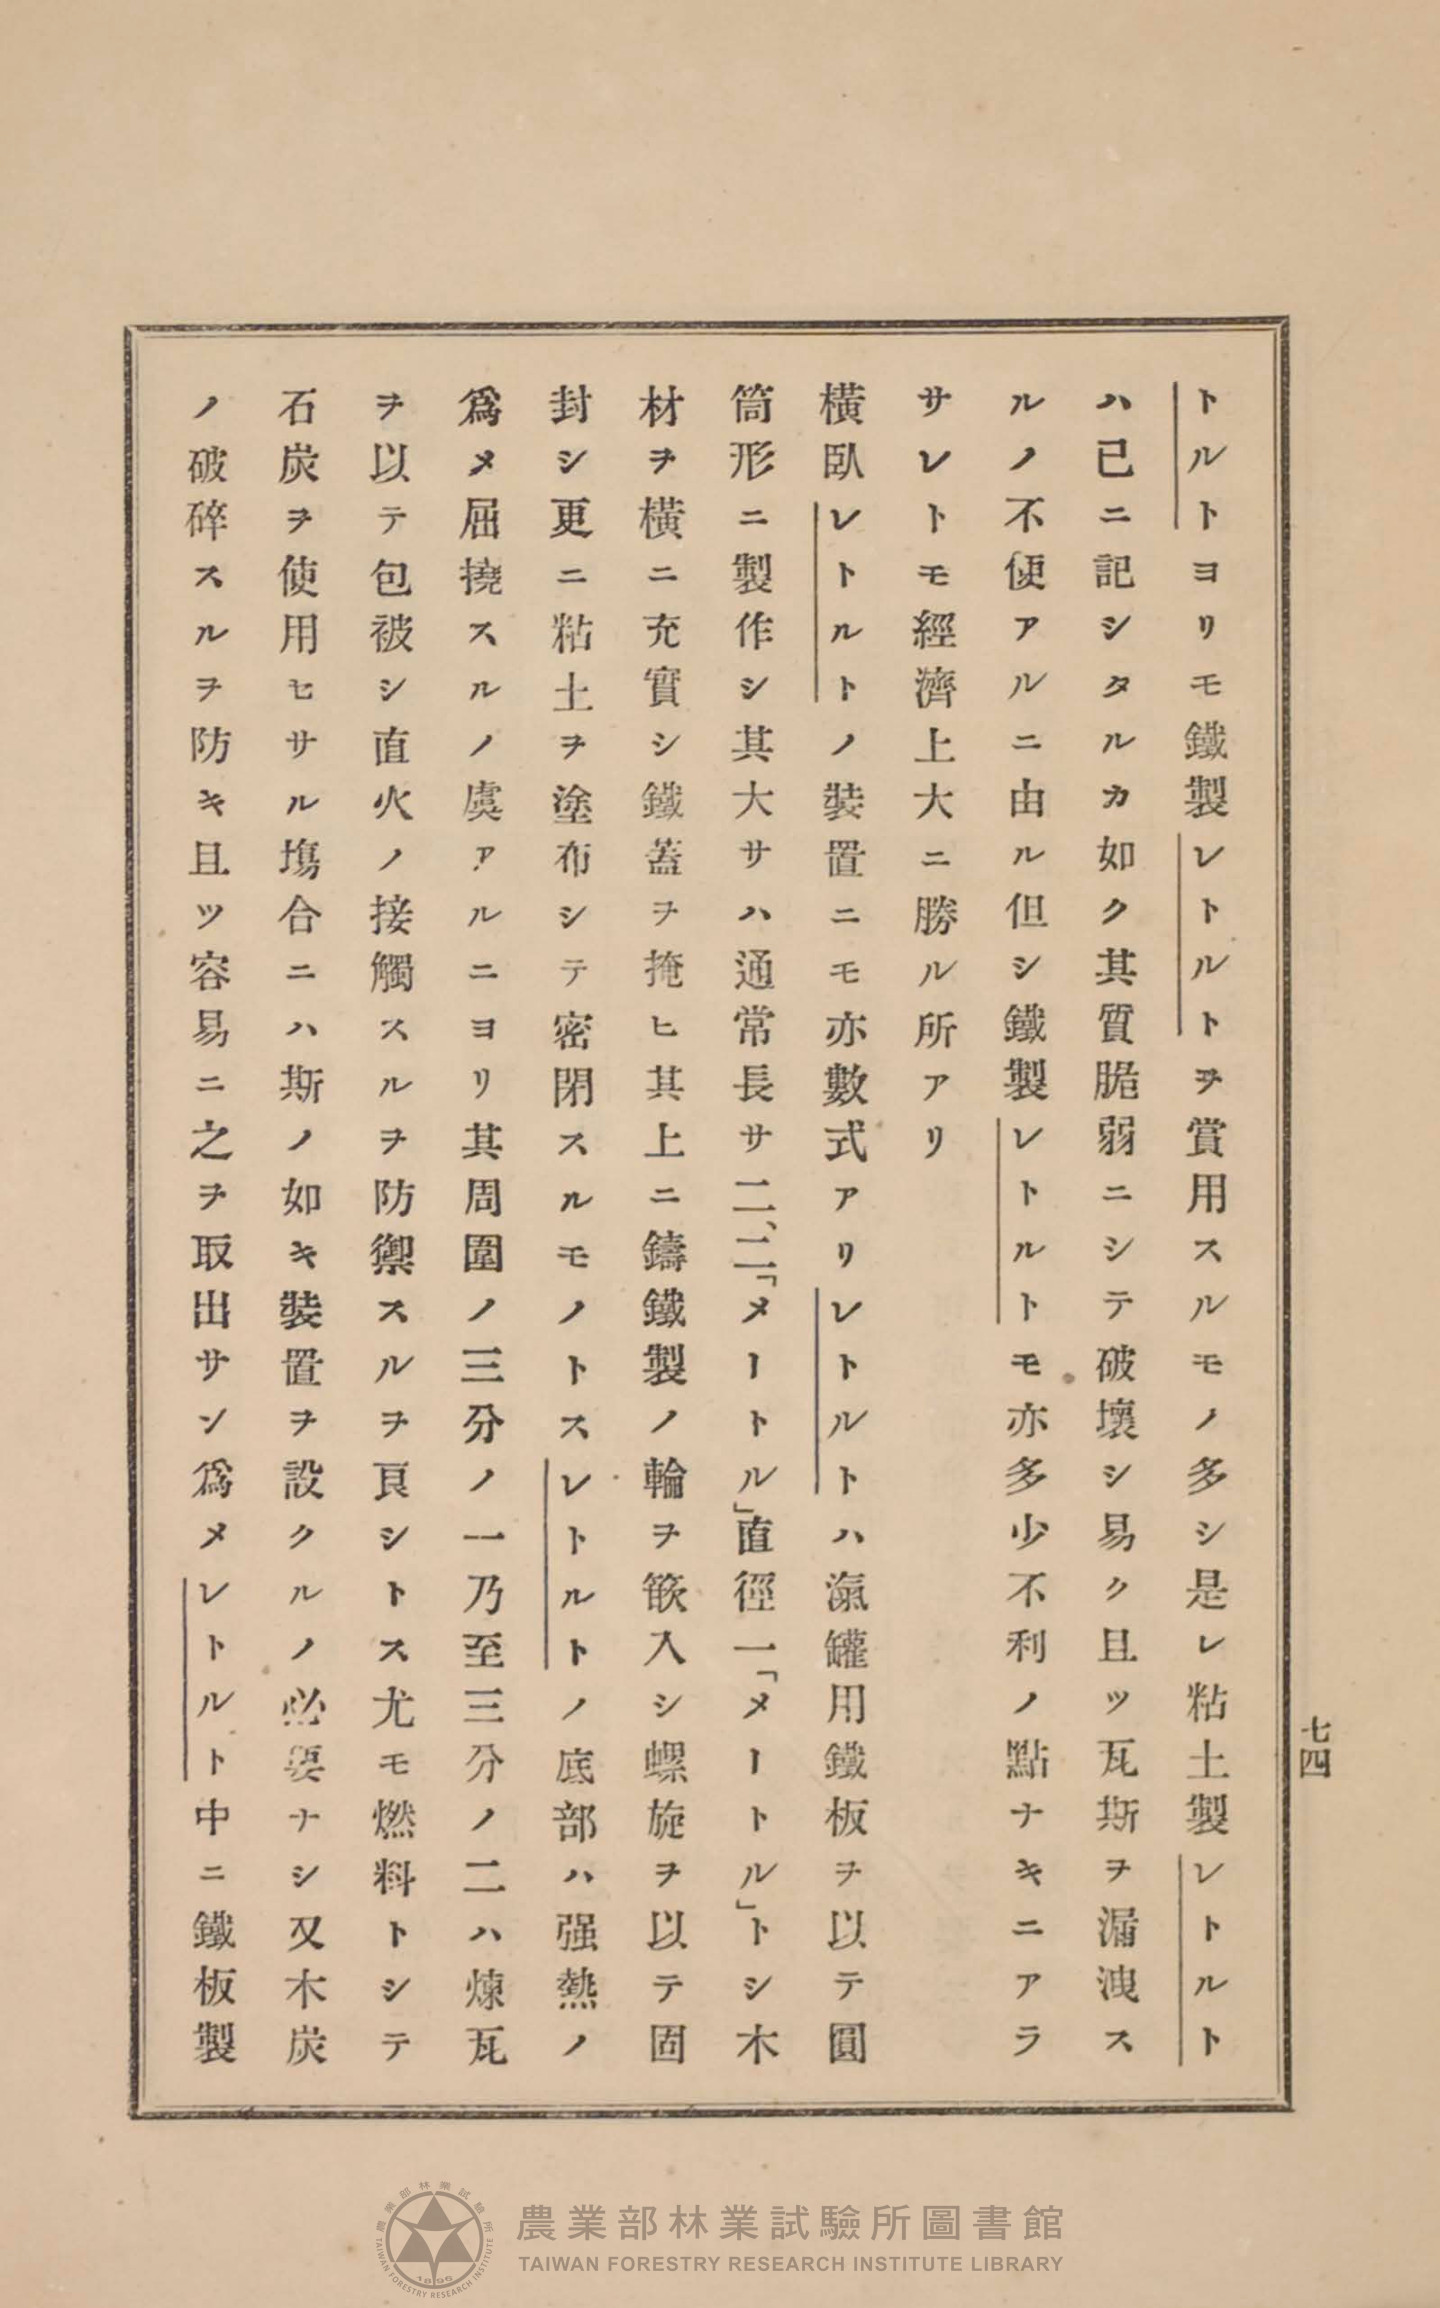 七四
トルトヨリモ鐵製レトルトヲ賞用スルモノ多シ是レ粘土製レトルト
ハ已ニ記シタルカ如ク其質脆弱ニシテ破壞シ易ク且ツ瓦斯ヲ漏洩ス
ルノ不便アルニ由ル但シ鐵製レトルトモ亦多少不利ノ點ナキニアラ
サレトモ經濟上大ニ勝ル所アリ
橫臥レトルトノ裝置ニモ亦數式アリレトルトハ滊罐用鐵板ヲ以テ圓
筒形ニ製作シ其大サハ通常長サ二、二「メートル」直徑一「メートル」トシ木
材ヲ橫ニ充實シ鐵蓋ヲ掩ヒ其上ニ鑄鐵製ノ輪ヲ篏入シ螺旋ヲ以テ固
封シ更ニ粘土ヲ塗布シテ密閉スルモノトスレトルトノ底部ハ强熱ノ
爲メ屈撓スルノ虞アルニヨリ其周圍ノ三分ノ一乃至三分ノ二ハ煉瓦
ヲ以テ包被シ直火ノ接觸スルヲ防禦スルヲ良シトス尤モ燃料トシテ
石炭ヲ使用セサル塲合ニハ斯ノ如キ裝置ヲ設クルノ必要ナシ又木炭
ノ破碎スルヲ防キ且ツ容易ニ之ヲ取出サン爲メレトルト中ニ鐵板製
農業部林業試驗所圖書館
TAIWAN FORESTRY RESEARCH INSTITUTE LIBRARY
農業部林業試驗所
TAIWAN FORESTRY RESEARCH INSTITUTE
1896